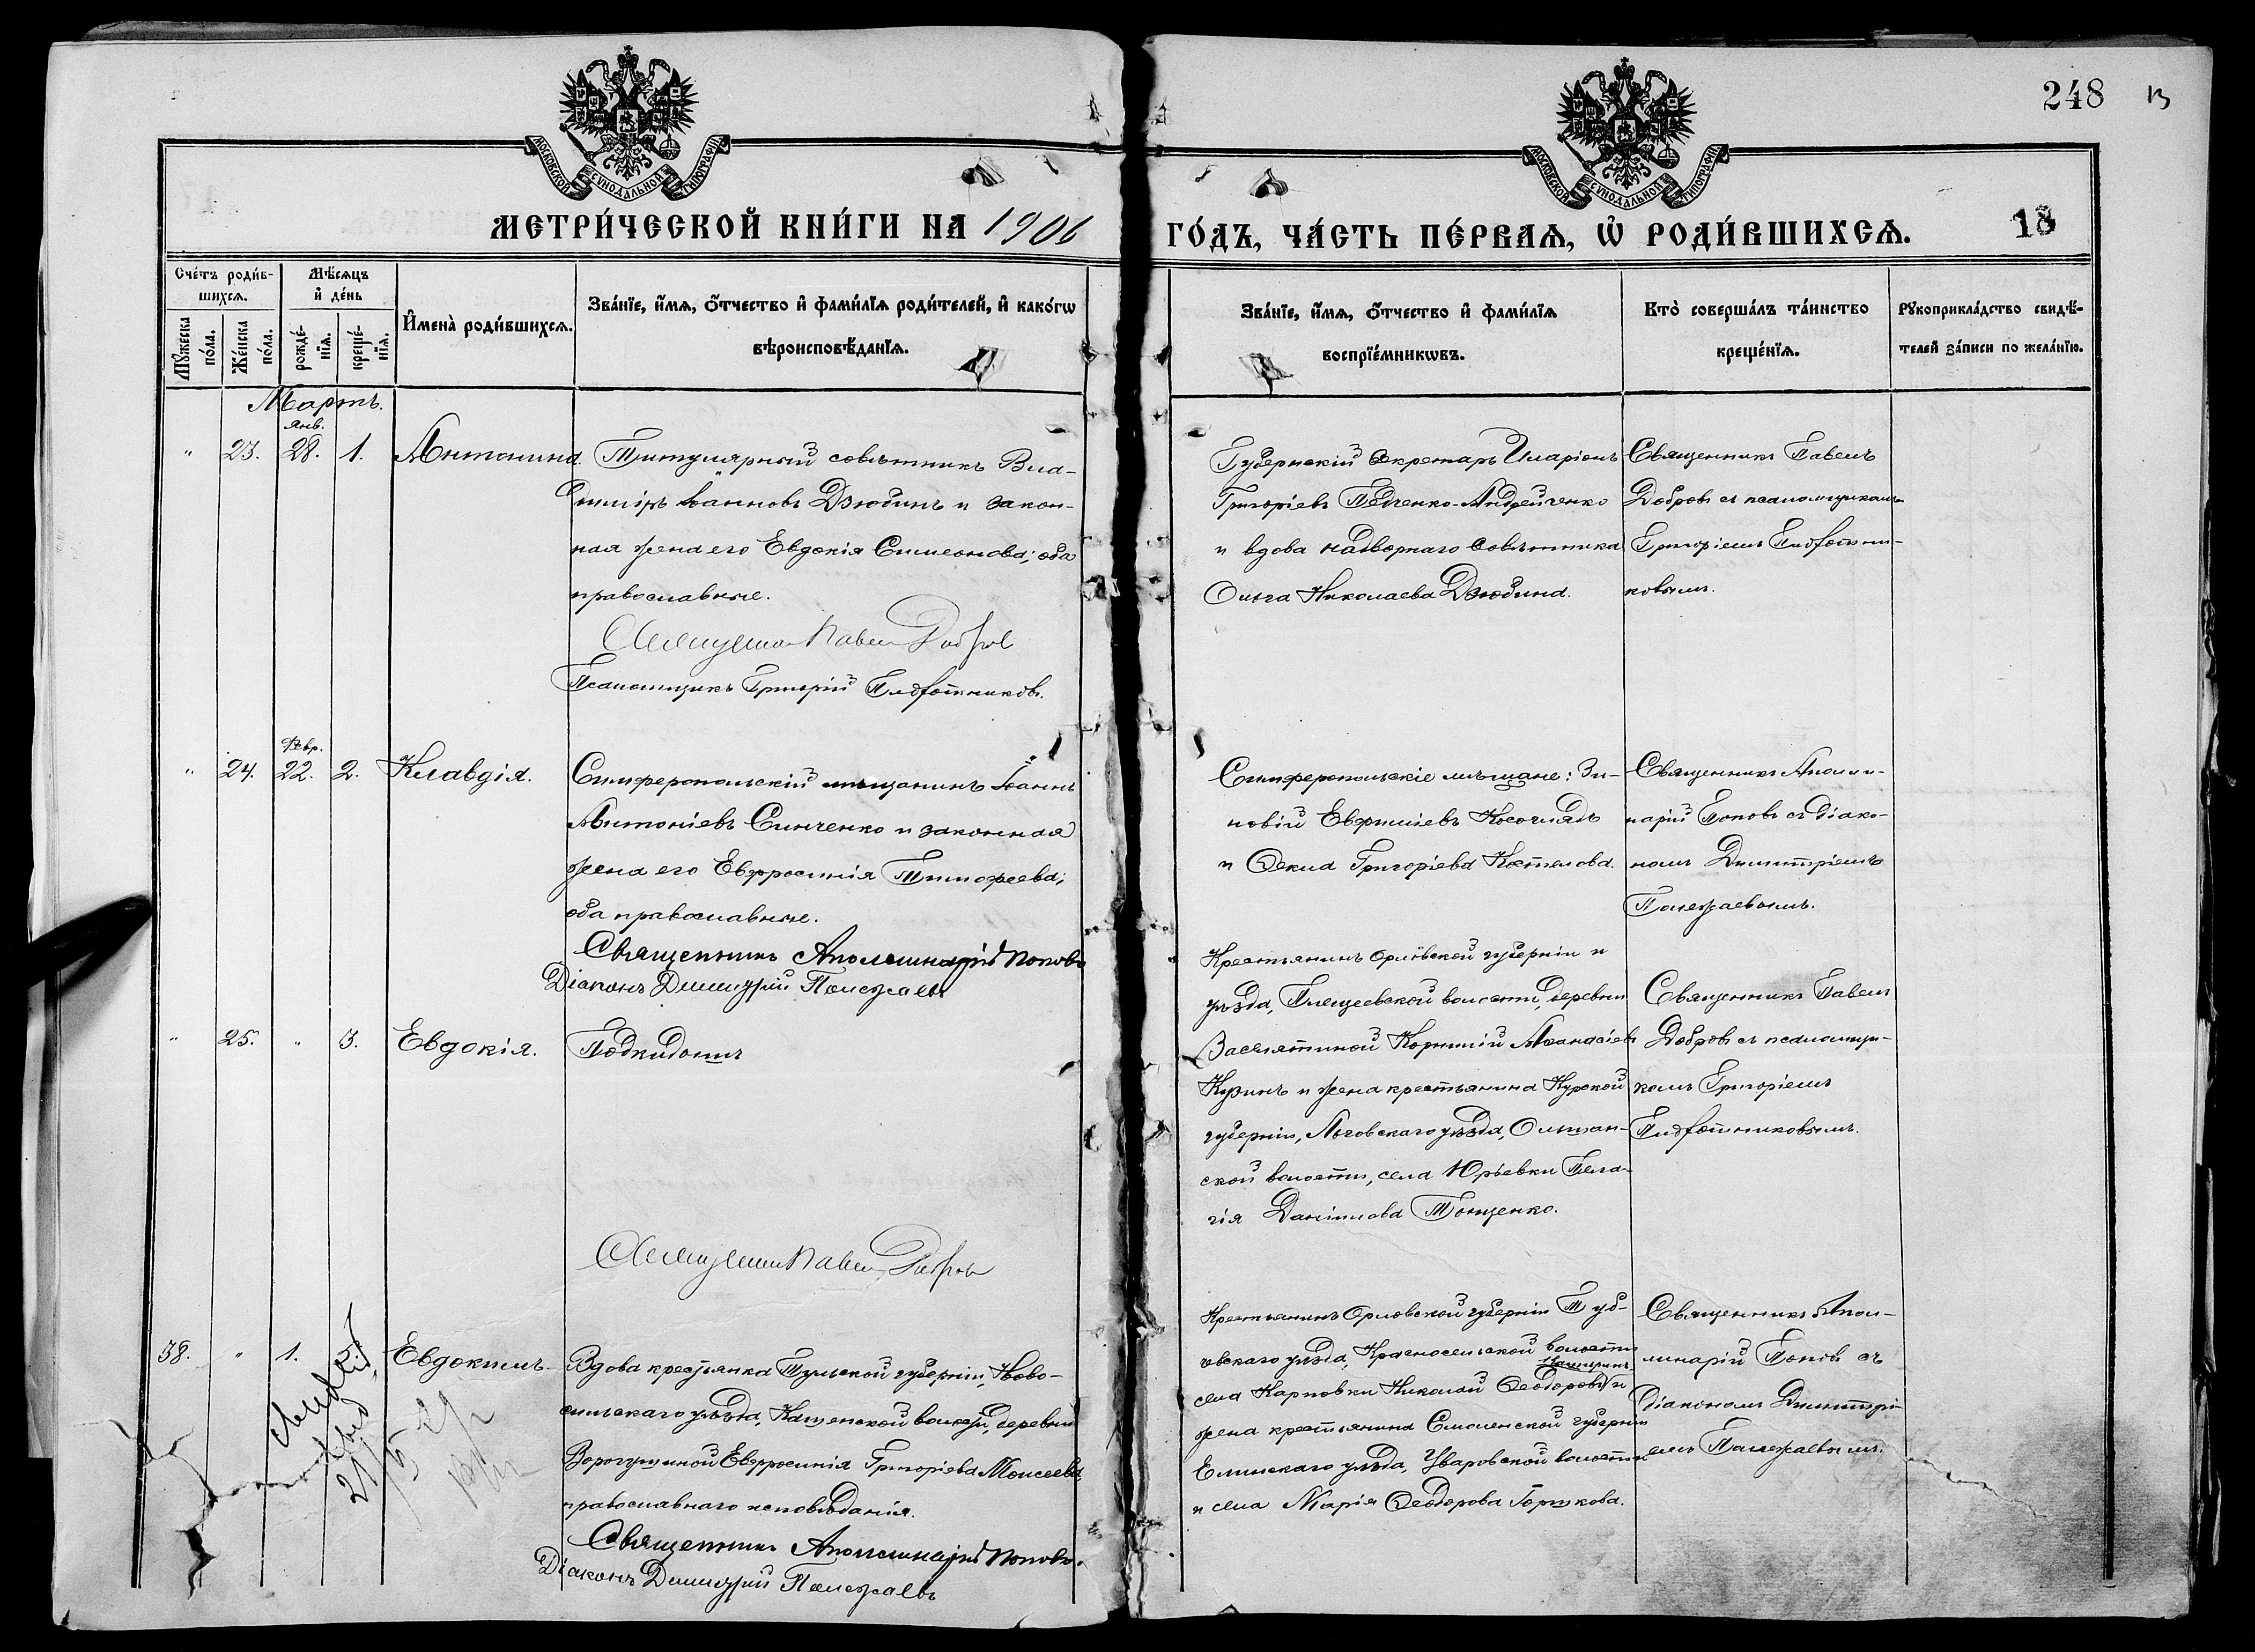 248 13
МОСКОВСКОЙ СѴНОДАЛЬНОЙ ТИПОГРАФІИ
МОСКОВСКОЙ СѴНОДАЛЬНОЙ ТИПОГРАФІИ
МЕТРИ́ЧЕСКОЙ КНИ́ГИ НА 1906 ГО́ДЪ, ЧА́СТЬ ПЕ́РВАѦ, Ѡ҆ РОДИ́ВШИХСѦ. 18
Сче́тъ роди́в-
шихсѧ.
Мѣ́сѧцъ
и҆ де́нь
Мꙋ́жеска
по́ла.
Же́нска
по́ла.
рожде́-
нїѧ.
креще́-
нїѧ.
И҆мена̀ роди́вшихсѧ.
Зва́нїе, и҆́мѧ, ѻ҆́тчество и҆ фами́лїѧ роди́телей, и҆ како́гѡ
вѣроисповѣ́данїѧ.
Зва́нїе, и҆́мѧ, ѻ҆́тчество и҆ фами́лїѧ
воспрїе́мникѡвъ.
Кто̀ соверша́лъ та́инство
креще́нїѧ.
Рꙋкоприкла́дство свидѣ́-
телей за́писи по жела́нїю.
Мартъ.
янв.
" 23. 28. 1. Антонина.
Титулярный совѣтникъ Вла-
димiръ Іоанновъ Дзюбинъ и закон-
ная жена его Евдокія Симеонова; оба
православные.
Священникъ Павелъ Добровъ
Псаломщикъ Григорій Плотниковъ.
Губернскій секретарь Иларіонъ
Григоріевъ Педченко-Андрейченко
и вдова надворнаго совѣтника
Ольга Николаева Дзюбина.
Священникъ Павелъ
Добровъ съ псаломщикомъ
Григоріемъ
ковымъ.
Февр.
" 24. 22. 2. Клавдія.
Симферопольскій мѣщанинъ Іоаннъ
Антоніевъ Синченко и законная
жена его Евфросинія Тимофеева;
оба православные.
Священникъ Аполлинарій Поповъ
Діаконъ Димитрій Полежаевъ
Симферопольскіе мѣщане: Зи-
новій Евфиміевъ Косоглядъ
и Ѳекла Григоріева Костелова.
Священникъ Аполли-
нарій Поповъ съ діако-
номъ Димитріемъ
Полежаевымъ.
" 25. " 3. Евдокія.
Подкидышъ
Священникъ Павелъ Добровъ
Крестьянинъ Орловской губерніи и
уѣзда, Плещеевской волости, деревни
Засѣлятиной Корнилій Аѳанасіевъ
Кузинъ и жена крестьянина Курской
губерніи, Льговскаго уѣзда, Ольшан-
ской волости, села Юрьевки Пела-
гія Даніилова Тонщенко.
Священникъ Павелъ
Добровъ съ псаломщи-
комъ Григоріемъ
38. " 1. 5. Евдокимъ.
Вдова крестьянка Тульской губерніи, Ново-
сильскаго уѣзда, волости, деревни
Ворогушиной Евфросинія Григоріева Моисеева,
православнаго исповѣданія.
Священникъ Аполлинарій Поповъ.
Діаконъ Димитрій Полежаевъ
Крестьянинъ Орловской губерніи Труб-
чевскаго уѣзда, Красносельской волости
села Карповки Николай Ѳеодоровъ и
жена крестьянина Смоленской губерніи
Ельнинскаго уѣзда, Уваровской волости
и села Марія Ѳеодорова Горшкова.
Священникъ Апол-
линарій Поповъ съ
діакономъ Димитрі-
емъ Полежаевымъ.